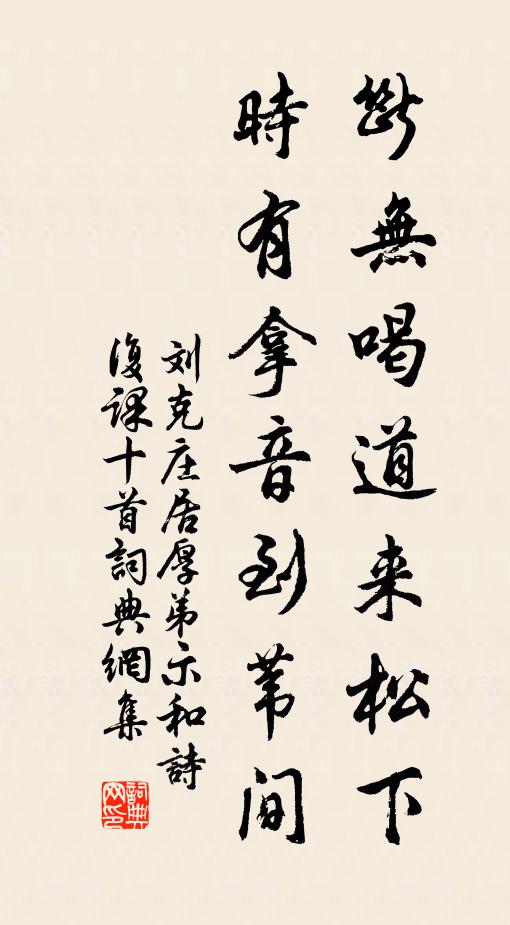 斷無喝道来松下
時有拿音到苇间
刘克庄居厚弟示和詩
復課十首詞典網集
詞典网印